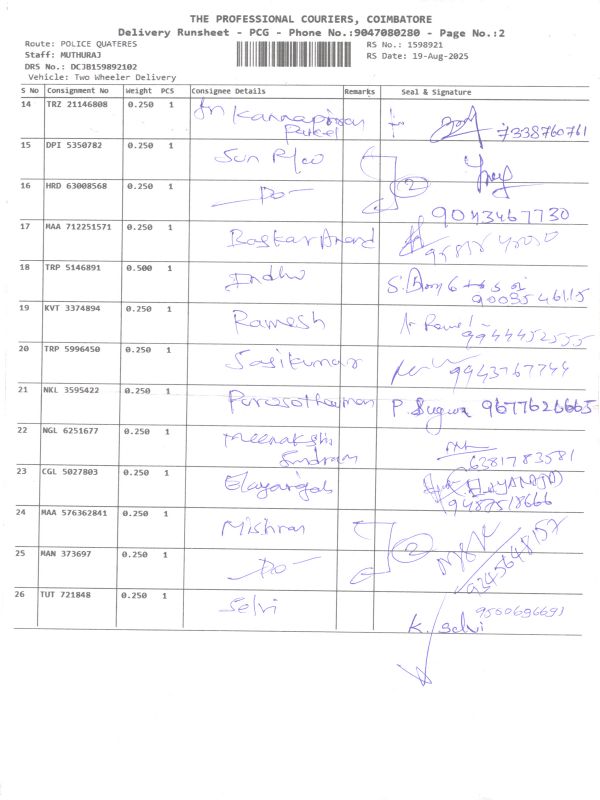 THE PROFESSIONAL COURIERS, COIMBATORE
Delivery Runsheet - PCG - Phone No.:9047080280 - Page No.:2
Route: POLICE QUATERES
RS No.: 1598921
Staff: MUTHURAJ
RS Date: 19-Aug-2025
DRS No.: DCJB159892102
Vehicle: Two Wheeler Delivery
S No Consignment No Weight PCS Consignee Details Remarks Seal & Signature
14 TRZ 21146808 0.250 1 Sri Kannapiran
7338760761
15 DPI 5350782 0.250 1 Sun
16 HRD 63008568 0.250 1 -Do- 2
9043467730
17 MAA 712251571 0.250 1 Baskar Anand
18 TRP 5146891 0.500 1 Indhu
9003546115
19 KVT 3374894 0.250 1 Ramesh
9944452555
20 TRP 5996450 0.250 1 Sasikumar 9943767744
21 NKL 3595422 0.250 1 Purusothaman P. Suguna 9677626665
22 NGL 6251677 0.250 1 Meenakshi
Sundram 6381783581
23 CGL 5027803 0.250 1 ELAYARAJA
9487518666
24 MAA 576362841 0.250 1 Mishran
25 MAN 373697 0.250 1 -Do- 2 9345648157
26 TUT 721848 0.250 1 Selvi 9500696691
K. Selvi